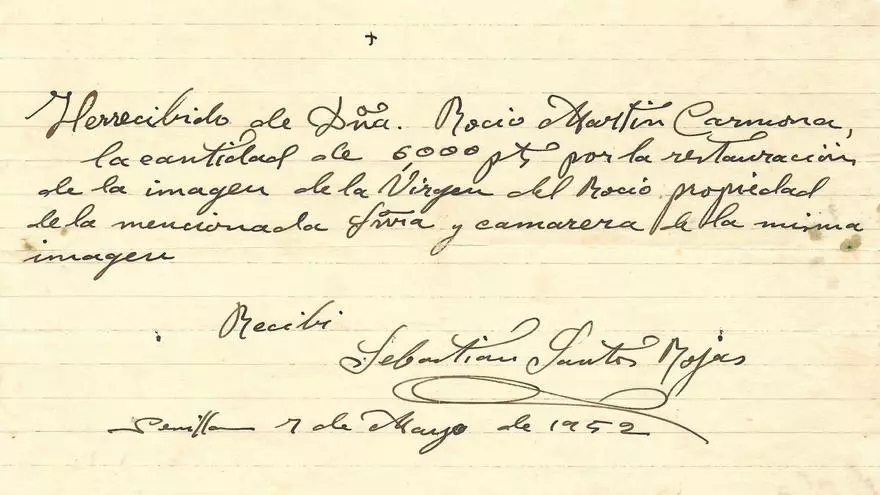 +
He recibido de Dña. Rocio Martin Carmona,
la cantidad de 6,000 pts por la restauración
de la imagen de la Virgen del Rocio propiedad
de la mencionada Dñra y camarera de la misma
imagen
Recibi
Sebastian Santos Rojas
Sevilla 7 de Mayo de 1952